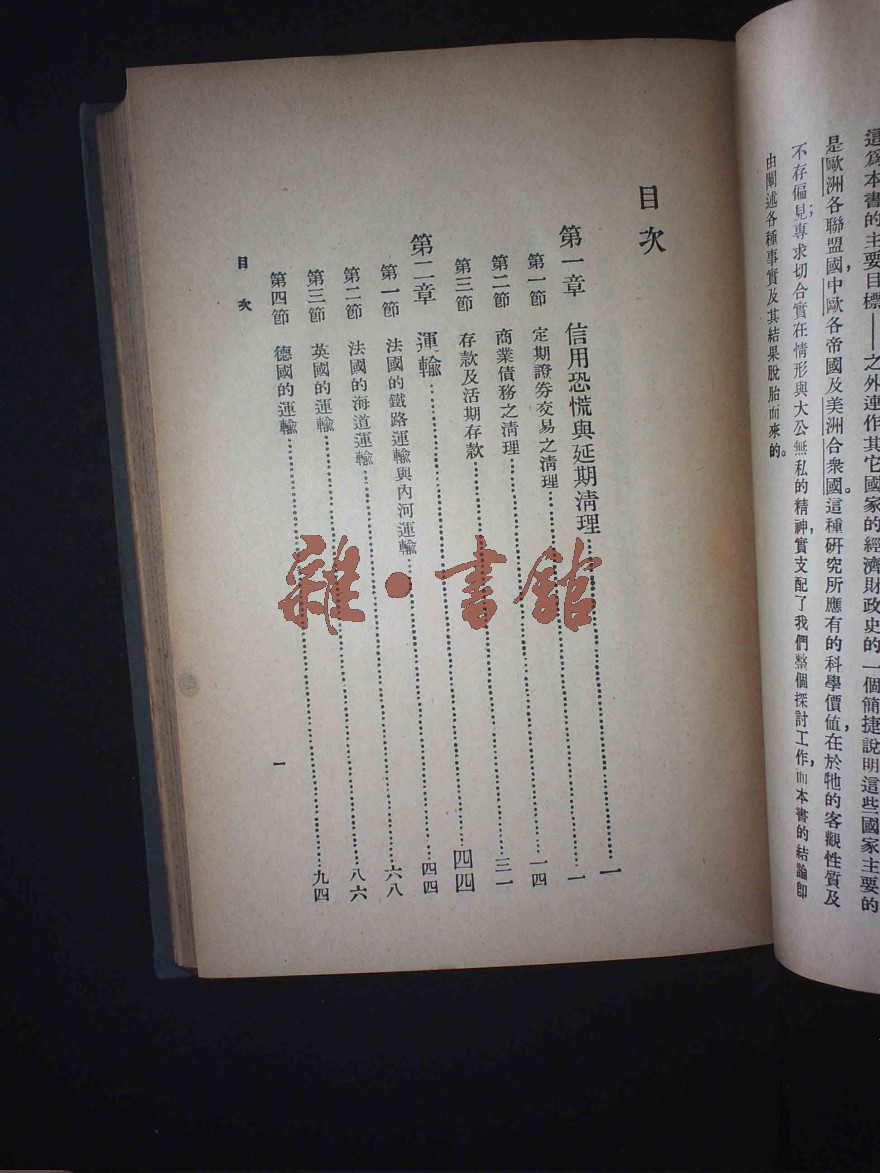 這爲本書的主要目標——之外連作其它國家的經濟財政史的一個簡捷說明這些國家主要的
是歐洲各聯盟國，中歐各帝國及美洲合衆國。這種研究所應有的科學價值，在於牠的客觀性質及
不存偏見；專求切合實在情形與大公無私的精神，實支配了我們整個探討工作，而本書的結論即
由闡述各種事實及其結果脫胎而來的。
目次
第一章 信用恐慌與延期清理……一
第一節 定期證券交易之清理……一
第二節 商業債務之清理……一四
第三節 存款及活期存款……三一
第二章 運輸……四四
第一節 法國的鐵路運輸與內河運輸……四四
第二節 法國的海道運輸……六八
第三節 英國的運輸……八六
第四節 德國的運輸……九四
目次
一
雜·書館